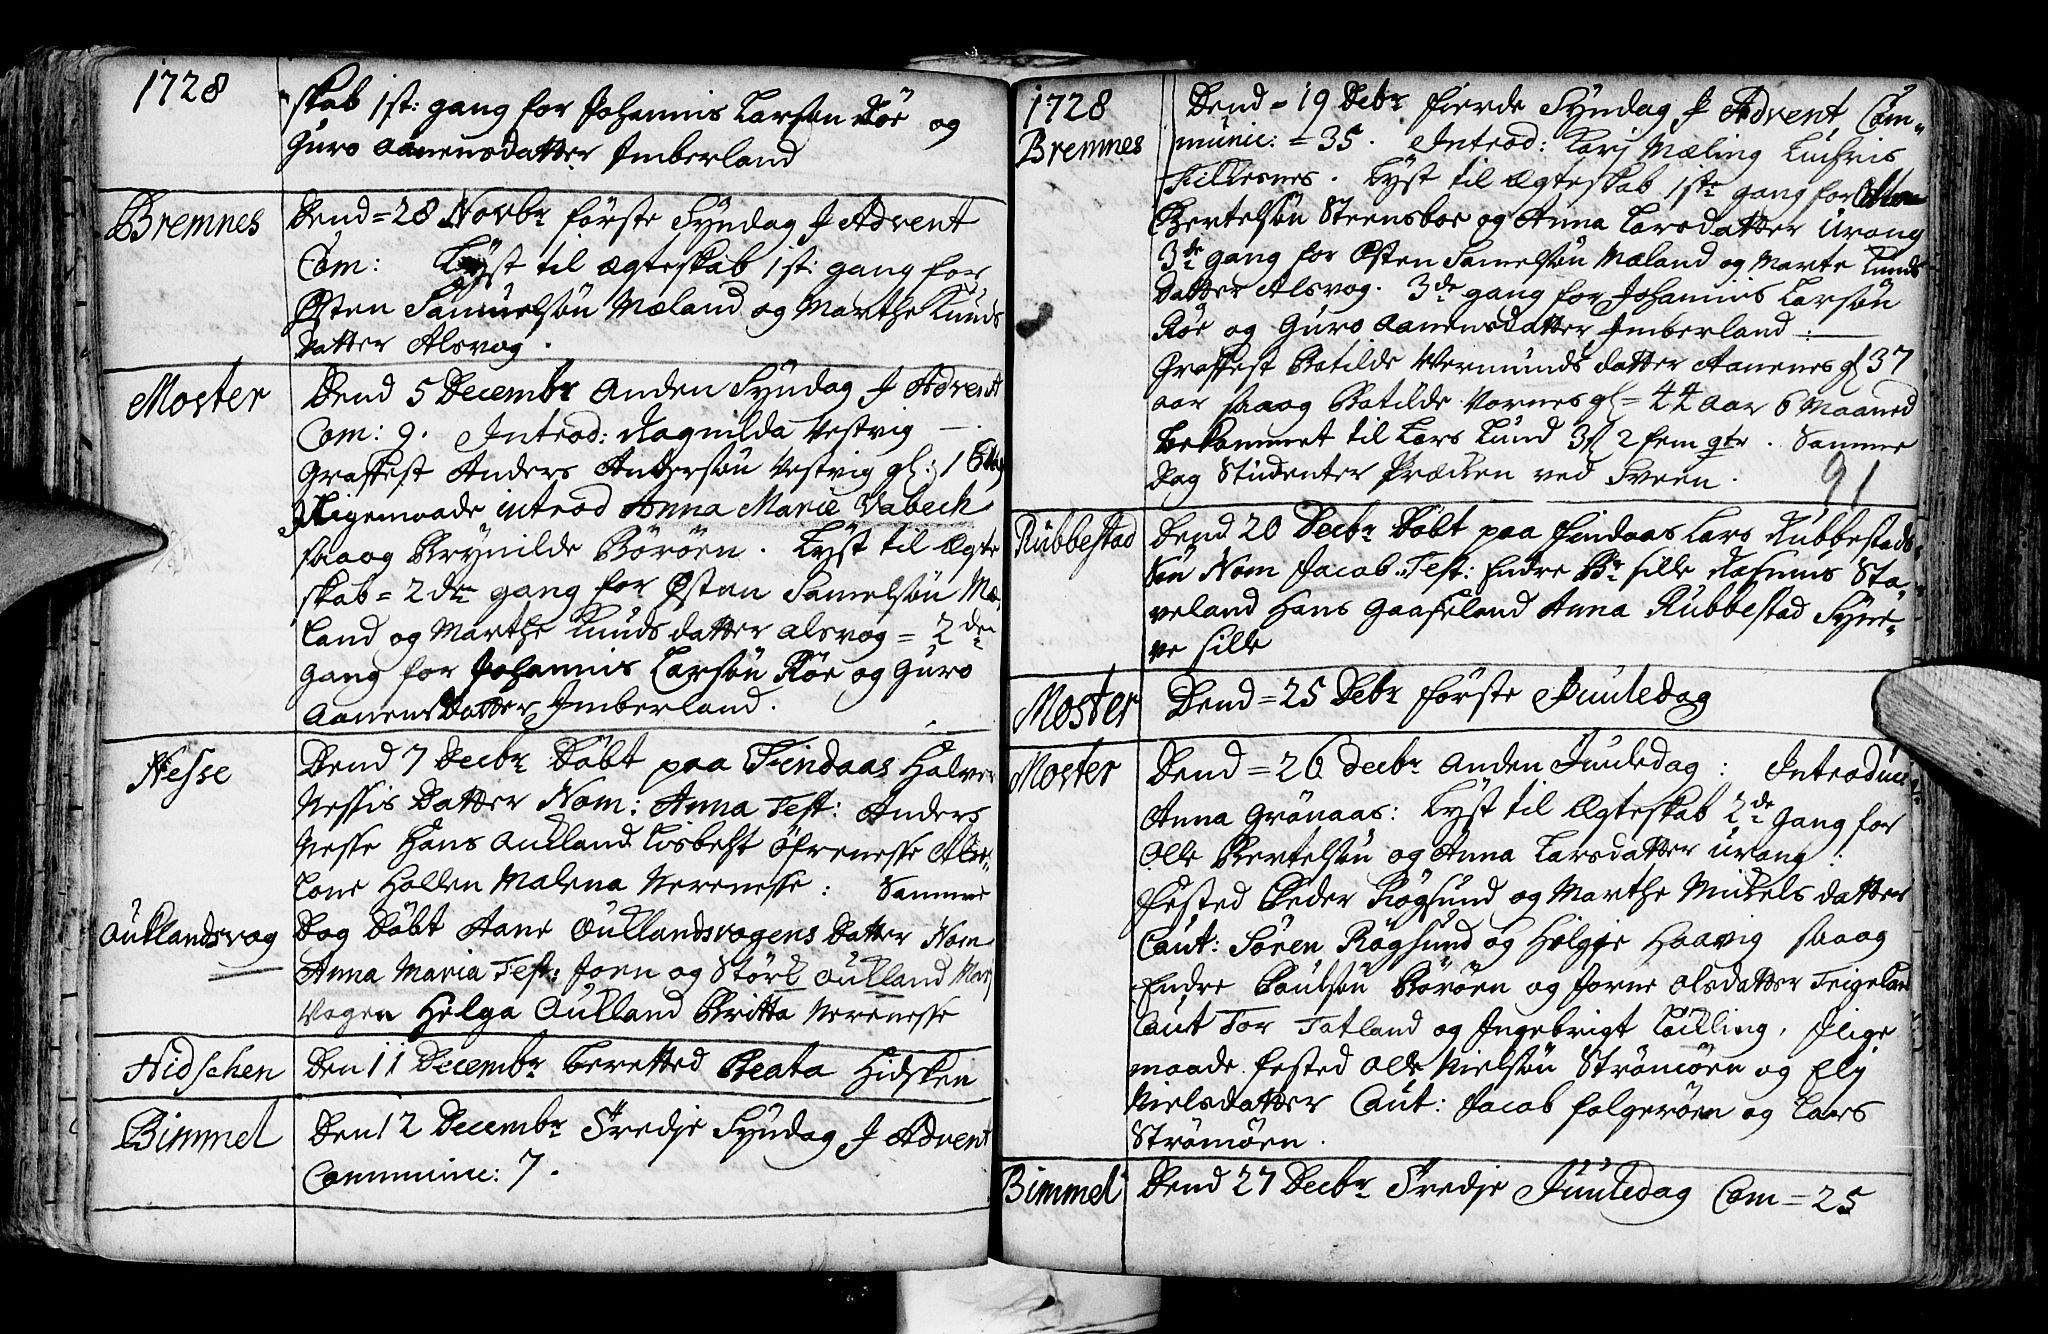 1728
skab 1st: gang for Johannis Larsøn Röe og
Guro Aanensdatter Imberland
Bremnes
Dend = 28 Novbr förste Syndag J Advent
Com: Lyst til ægteskab 1st: gang for
Østen Samuelsøn Mæland og Marthe Knuds
datter Alsvog.
Moster
Dend 5 Decembr Anden Syndag J Advent
Com: 9. Introd: Ragnilda Vestvig —.
Graffest Anders Andersøn Vestvig gl: 1
Jligemaade introd Anna Marie Vabeck
saaog Brynilde Böröen. Lyst til Ægte
skab = 2den gang for Østen Samelsøn Mæ,
land og Marthe Knuds datter alsvog = 2den
gang for Johannis Larsøn Röe og Guro
Aanens Datter Imberland.
Nesse
Dend 7 Decbr Döbt paa Findaas Halver
Nessis Datter Nom: Anna Test: Anders
Nesse Hans Aucland Lisbeht Öfrenesse
Lone Hollen Malena Nerenesse: Samme
Aucklandsvog
Dag Döbt Aane Aucllandsvogens Datter Nom
Anna Maria Test: Joen og Störck Auckland
Vogen Helga Auckland Britta Nerenesse
Hidschen
Den 11 Decembr beretted Beata Hidsken
Bimmel
Den 12 Decembr Tredje Syndag J Advent
Communic: 7.
1728
Bremnes
Dend = 19 Debr Fierde Syndag J Advent, Com-
munic: = 35. Introd: Karj Mæling
Fillesnes. Lyst til Ægteskab 1ste gang for
Bertelsøn Steensboe og Anna Larsdatter Urang
3de gang for Østen Samelsøn Mæland og Marte Knuds
datter Alsvog. 3de gang for Johannis Larsøn
Röe og Guro Aanensdatter Imberland:
Graffest Batilde Vermunds datter Aanenes gl 37
aar saaog Batilde Vornes gl = 44 aar 6 Maaned
bekommet til Lars Lund 3 2 fem qtr. Samme
Dag Studenter Prædken ved Sveen. 91
Rubbestad
Dend 20 Decbr Döbt paa Findaas Lars Rubbestads
Søn Nom Jacob. Test: Endre Br sille Rasmus Sta-
veland Hans Gaaseland Anna Rubbestad Syne-
ve sille
Moster
Dend = 25 Debr förste Juuledag
Moster
Dend = 26 decbr Anden Juuledag: Introduc:
Anna Grönaas: Lyst til Ægteskab 2de gang for
Olle Bertelsøn og Anna Larsdatter Urang:
fested Peder Rögsund og Marthe Mickels datter
Caut: Sören Rögsund og Helgje Haavig saaog
Endre Poulsøn Böröen og Jorne Olsdatter Teigeland
Caut Tor Totland og Ingebrigt Löckling, Jlige
maade fested Olle Nielsøn Strömöen og Elj
Nielsdatter Caut: Jacob folgeröen og Lars
Strömöen.
Bimmel
Dend 27 Decbr Tredje Juuledag Com = 25